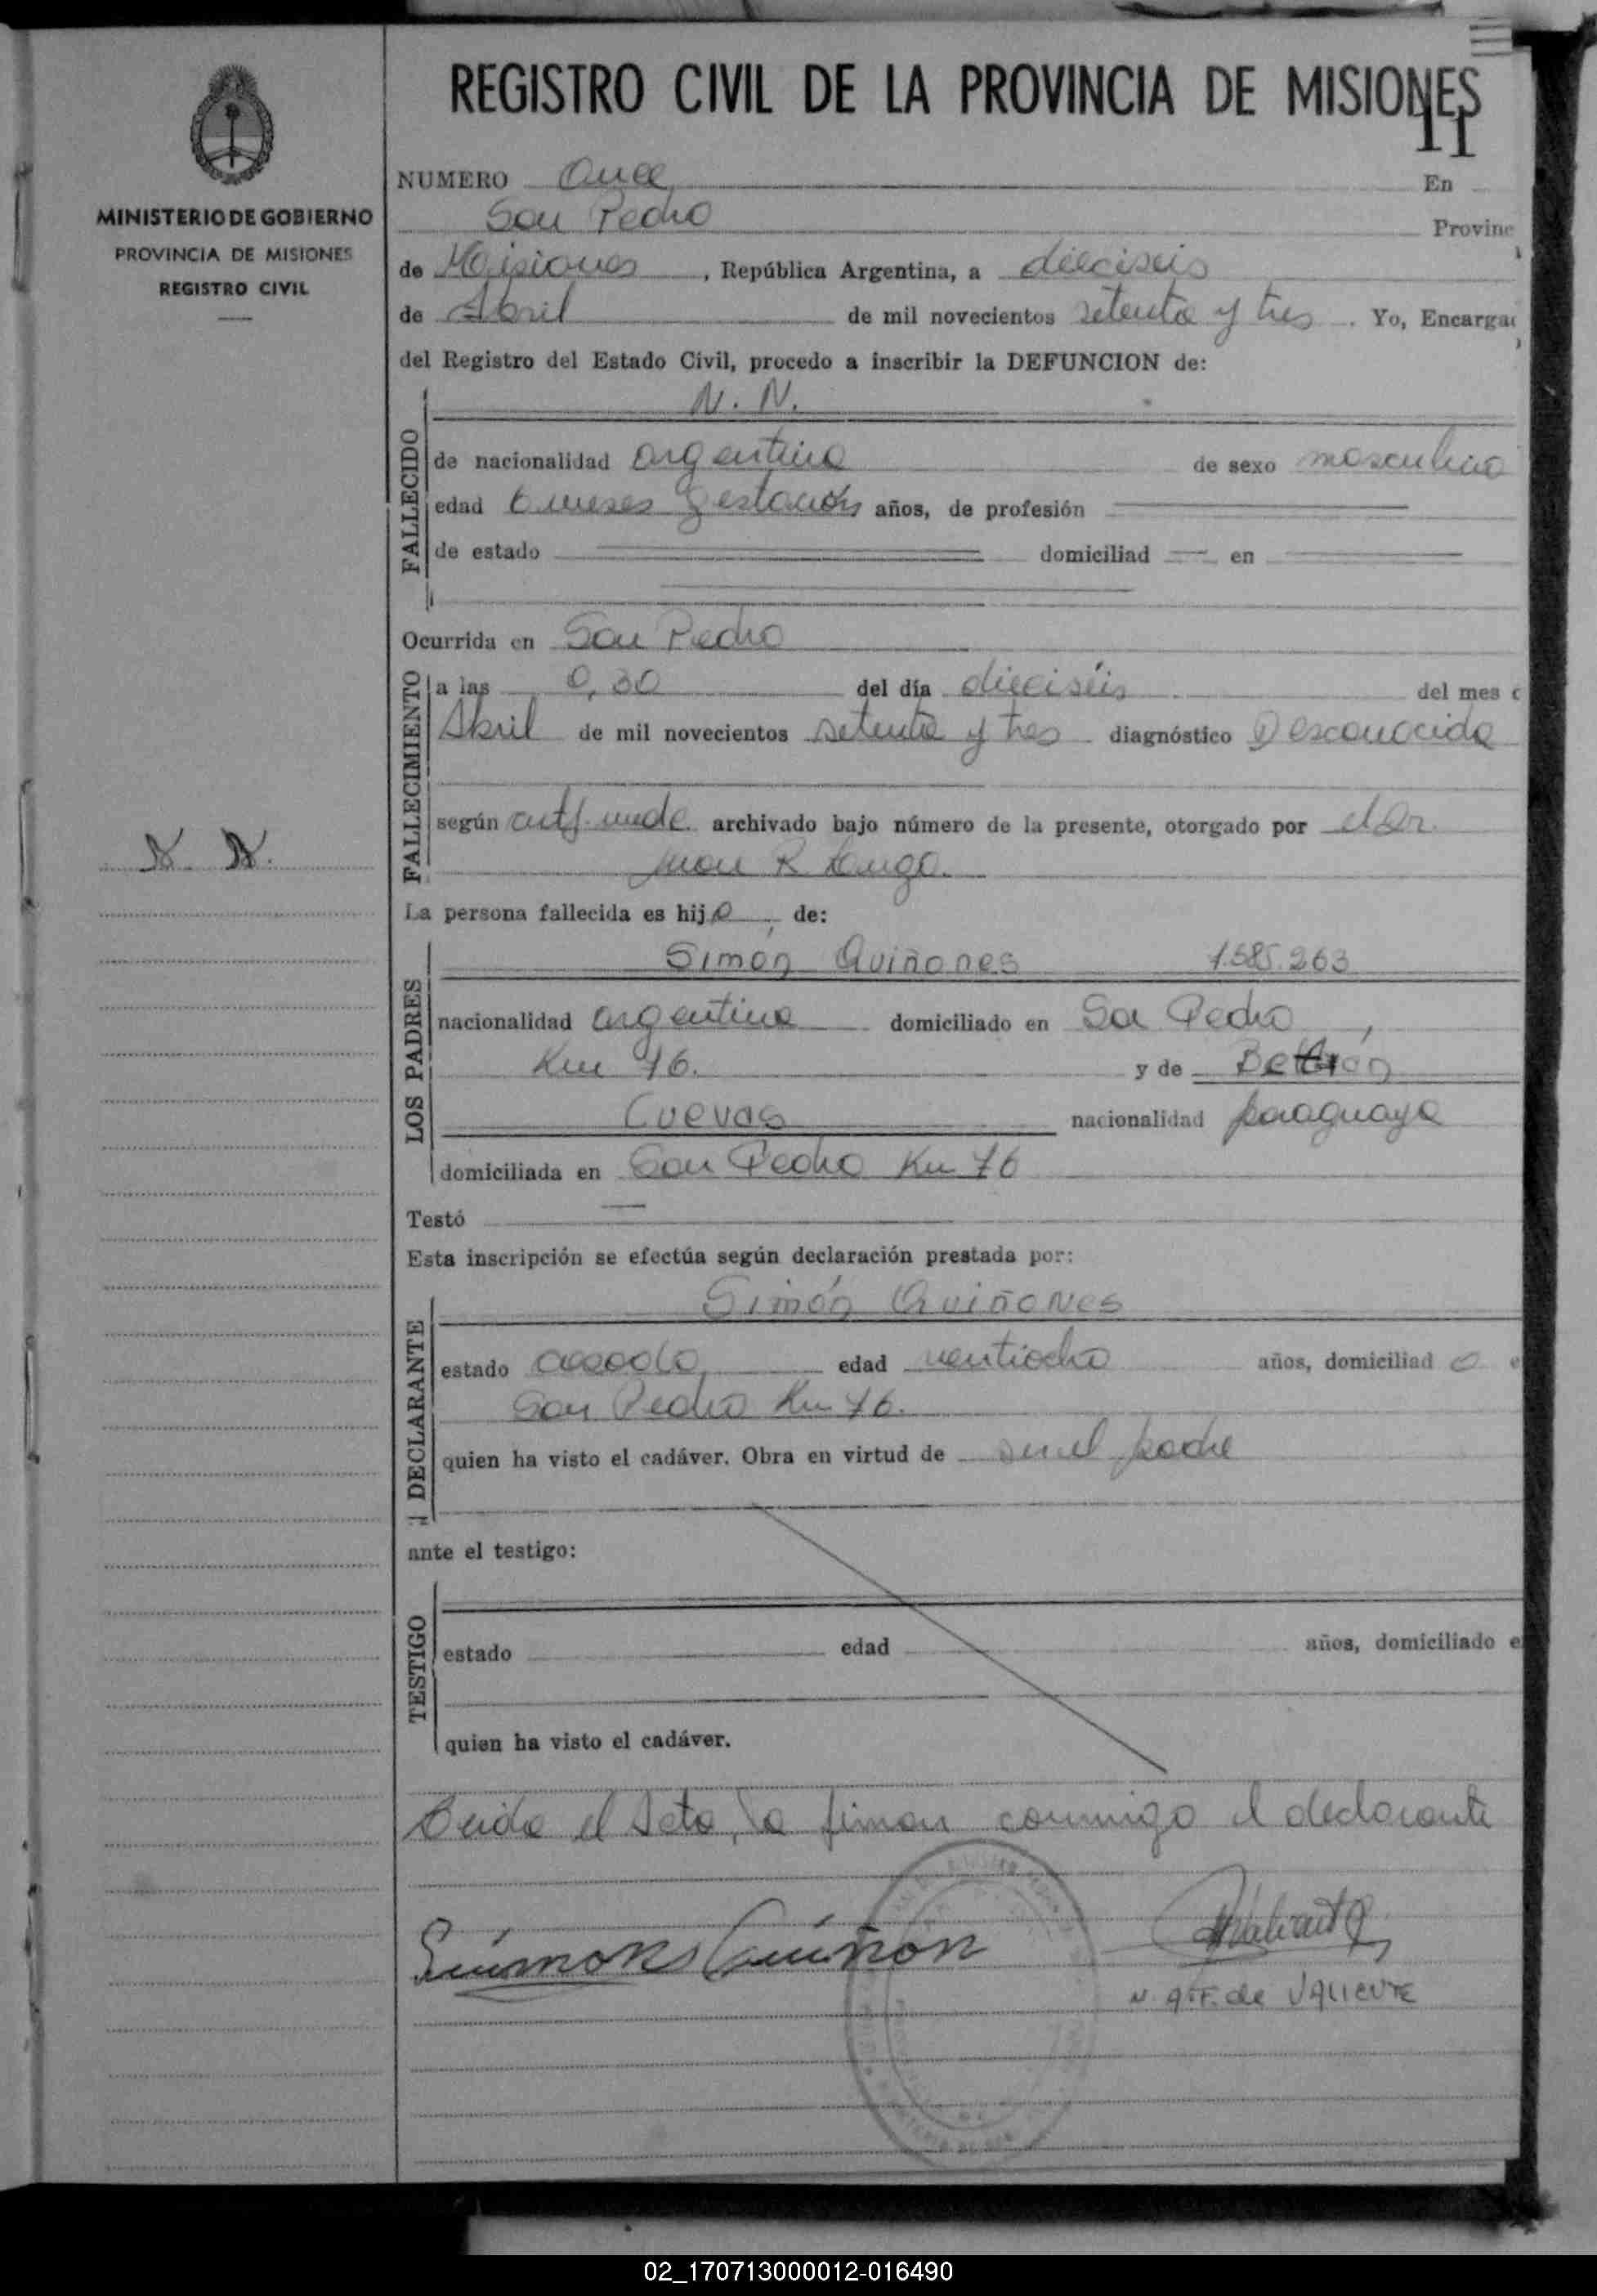 REGISTRO CIVIL DE LA PROVINCIA DE MISIONES
11
MINISTERIO DE GOBIERNO
PROVINCIA DE MISIONES
REGISTRO CIVIL
N. N.
NUMERO Once En
San Pedro Provinc
de Misiones, República Argentina, a dieciseis
de Abril de mil novecientos setenta y tres. Yo, Encargad
del Registro del Estado Civil, procedo a inscribir la DEFUNCION de:
N. N.
FALLECIDO
de nacionalidad argentina de sexo masculino
edad 6 meses gestación años, de profesión
de estado domiciliad en
Ocurrida en San Pedro
FALLECIMIENTO
a las 0,30 del día dieciséis del mes d
Abril de mil novecientos setenta y tres diagnóstico Desconocida
según archivado bajo número de la presente, otorgado por el Dr.
Juan R.
La persona fallecida es hijo, de:
LOS PADRES
Simón Quiñones 1.585.263
nacionalidad argentina domiciliado en San Pedro,
Km 76. y de
Cuevas nacionalidad paraguaya
domiciliada en San Pedro Km 76
Testó
Esta inscripción se efectúa según declaración prestada por:
Simón Quiñones
DECLARANTE
estado casado edad ventiocho años, domiciliad o e
San Pedro Km 76.
quien ha visto el cadáver. Obra en virtud de ser el padre
ante el testigo:
TESTIGO
estado edad años, domiciliado e
quien ha visto el cadáver.
Leida el Acta, la firman conmigo el declarante
N. A. F. de VALIENTE
02_170713000012-016490